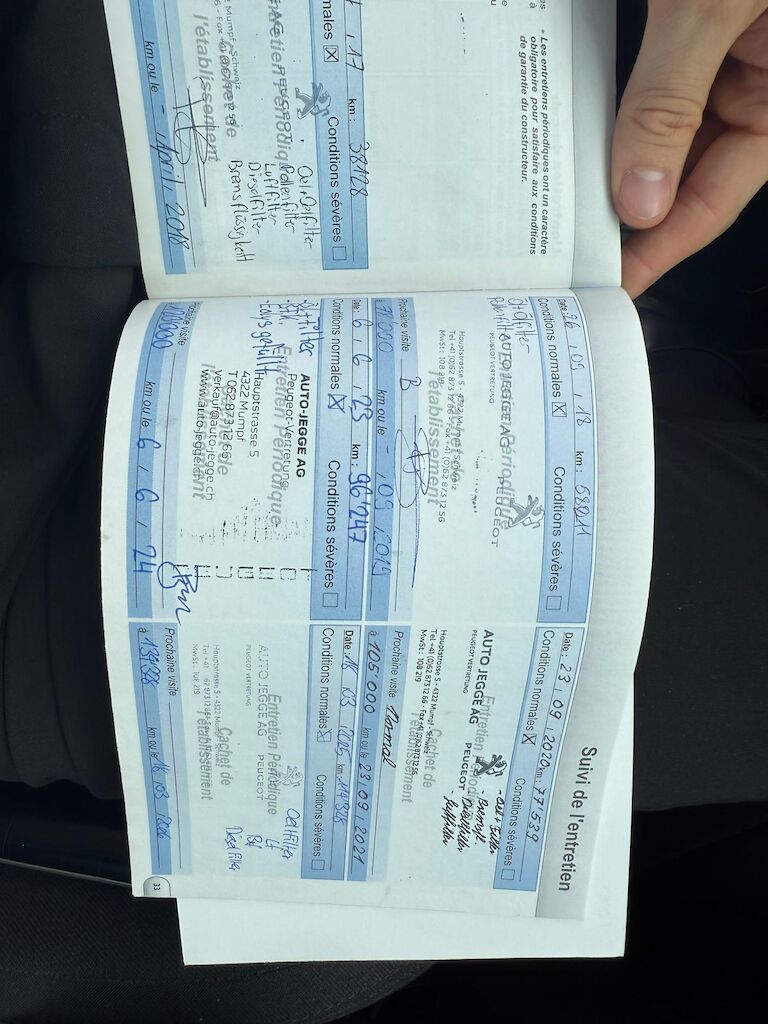 * Les entretiens périodiques ont un caractère
obligatoire pour satisfaire aux conditions
de garantie du constructeur.
17 km : 38128
Conditions sévères
PEUGEOT
Oel + Oelfilter
Pollenfilter
Luftfilter
Dieselfilter
Bremsflüssigkeit
l'établissement
km ou le - April, 2018
Suivi de l'entretien
Date : 26 / 09 / 18 km : 58011
Conditions normales ☒ Conditions sévères ☐
Entretien Périodique
Ölfilter
Pollenfilter
AUTO JEGGE AG
PEUGEOT VERTRETUNG
PEUGEOT
Hauptstrasse 5 - 4322 Mumpf - Schweiz
Tel +41 (0)62 873 12 66 - Fax +41 (0)62 873 12 56
MwSt.: 108 219
Cachet de
l'établissement
Prochaine visite B
km ou le - , 09 , 2019
Date : 23 / 09 / 2020 km : 77'539
Conditions normales ☒ Conditions sévères ☐
Entretien Périodique
AUTO JEGGE AG
PEUGEOT VERTRETUNG
PEUGEOT
- Oel + Filter
Hauptstrasse 5 - 4322 Mumpf - Schweiz
Tel +41 (0)62 873 12 66 - Fax +41 (0)62 873 12 56
MwSt.: 108 219
Cachet de
l'établissement
Prochaine visite Normal
à 105'000 km ou le 23 / 09 / 2021
Date : 6 / 6 / 23 km : 96'247
Conditions normales ☒ Conditions sévères ☐
Entretien Périodique
AUTO-JEGGE AG
Peugeot-Vertretung
Hauptstrasse 5
4322 Mumpf
T 062 873 12 66
verkauf@auto-jegge.ch
www.auto-jegge.ch
Cachet de
l'établissement
Prochaine visite
km ou le 6 / 6 / 24
Date : 16 / 03 / 2025 km : 114'328
Conditions normales ☒ Conditions sévères ☐
Entretien Périodique
AUTO JEGGE AG
PEUGEOT VERTRETUNG
PEUGEOT
Oelfilter
LF
Hauptstrasse 5 - 4322 Mumpf
MwSt.: 108 219
Cachet de
l'établissement
Prochaine visite
à 134'328 km ou le 16 / 03 / 2026
33